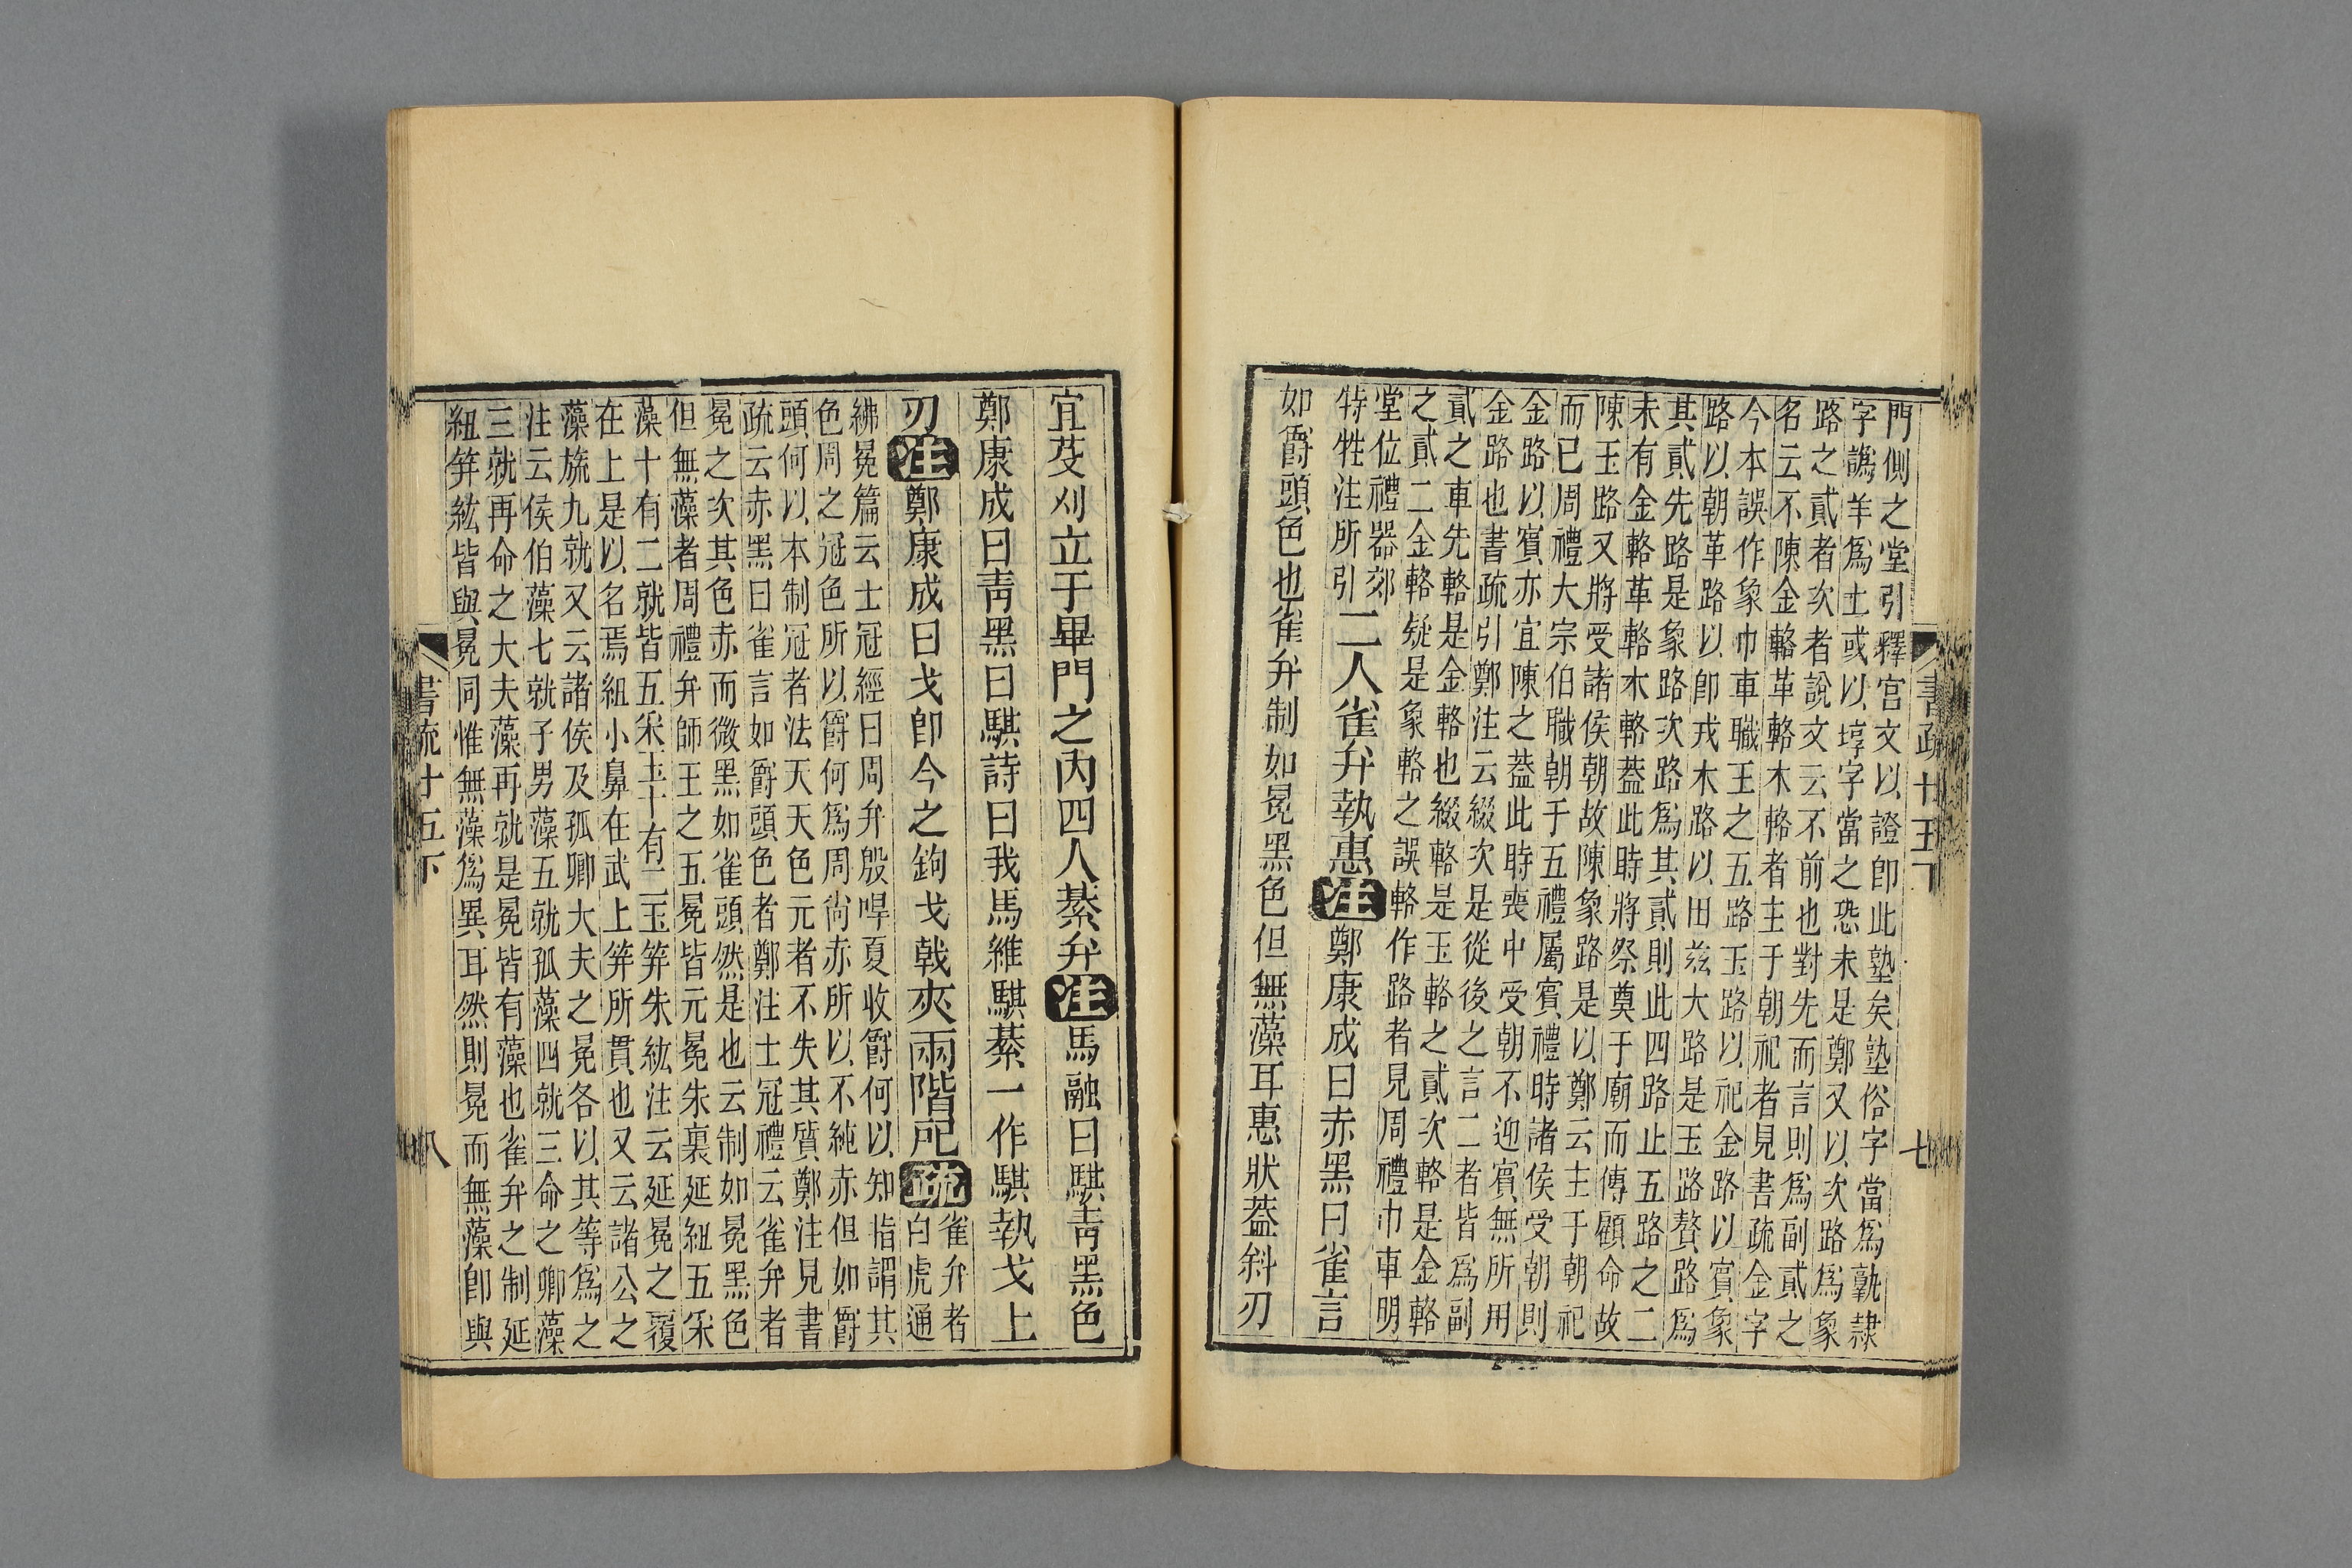 門側之堂引釋宫文以證卽此塾矣塾俗字當爲䎡隷
字譌羊爲土或以埻字當之恐未是鄭又以次路爲象
路之貳者次者說文云不前也對先而言則爲副貳之
名云不陳金輅革輅木輅者主于朝祀者見書疏金字
今本誤作象巾車職王之五路玉路以祀金路以賓象
路以朝革路以卽戎木路以田兹大路是玉路贅路爲
其貳先路是象路次路爲其貳則此四路止五路之二
未有金輅革輅木輅葢此時將祭奠于廟而傳顧命故
陳玉路又將受諸侯朝故陳象路是以鄭云主于朝祀
而已周禮大宗伯職朝于五禮屬賓禮時諸侯受朝則
金路以賓亦宜陳之葢此時喪中受朝不迎賓無所用
金路也書疏引鄭注云綴次是從後之言二者皆爲副
貳之車先輅是金輅也綴輅是玉輅之貳次輅是金輅
之貳二金輅疑是象輅之誤輅作路者見周禮巾車明
堂位禮器郊
特牲注所引
二人雀弁執惠注鄭康成曰赤黑曰雀言
如爵頭色也雀弁制如冕黑色但無藻耳惠狀葢斜刃
書疏十五下
七
宜芟刈立于畢門之內四人綦弁注馬融曰騏青黑色
鄭康成曰青黑曰騏詩曰我馬維騏綦一作騏執戈上
刃注鄭康成曰戈卽今之鉤戈戟夾兩階戺疏
雀弁者
白虎通
紼冕篇云士冠經曰周弁殷哻夏收爵何以知指謂其
色周之冠色所以爵何爲周尙赤所以不純赤但如爵
頭何以本制冠者法天天色元者不失其質鄭注見書
疏云赤黑曰雀言如爵頭色者鄭注士冠禮云雀弁者
冕之次其色赤而微黑如雀頭然是也云制如冕黑色
但無藻者周禮弁師王之五冕皆元冕朱裏延紐五采
藻十有二就皆五采玉十有二玉笄朱紘注云延冕之覆
在上是以名焉紐小鼻在武上笄所貫也又云諸公之
藻旒九就又云諸侯及孤卿大夫之冕各以其等爲之
注云侯伯藻七就子男藻五就孤藻四就三命之卿藻
三就再命之大夫藻再就是冕皆有藻也雀弁之制延
紐笄紘皆與冕同惟無藻爲異耳然則冕而無藻卽與
書疏十五下
八